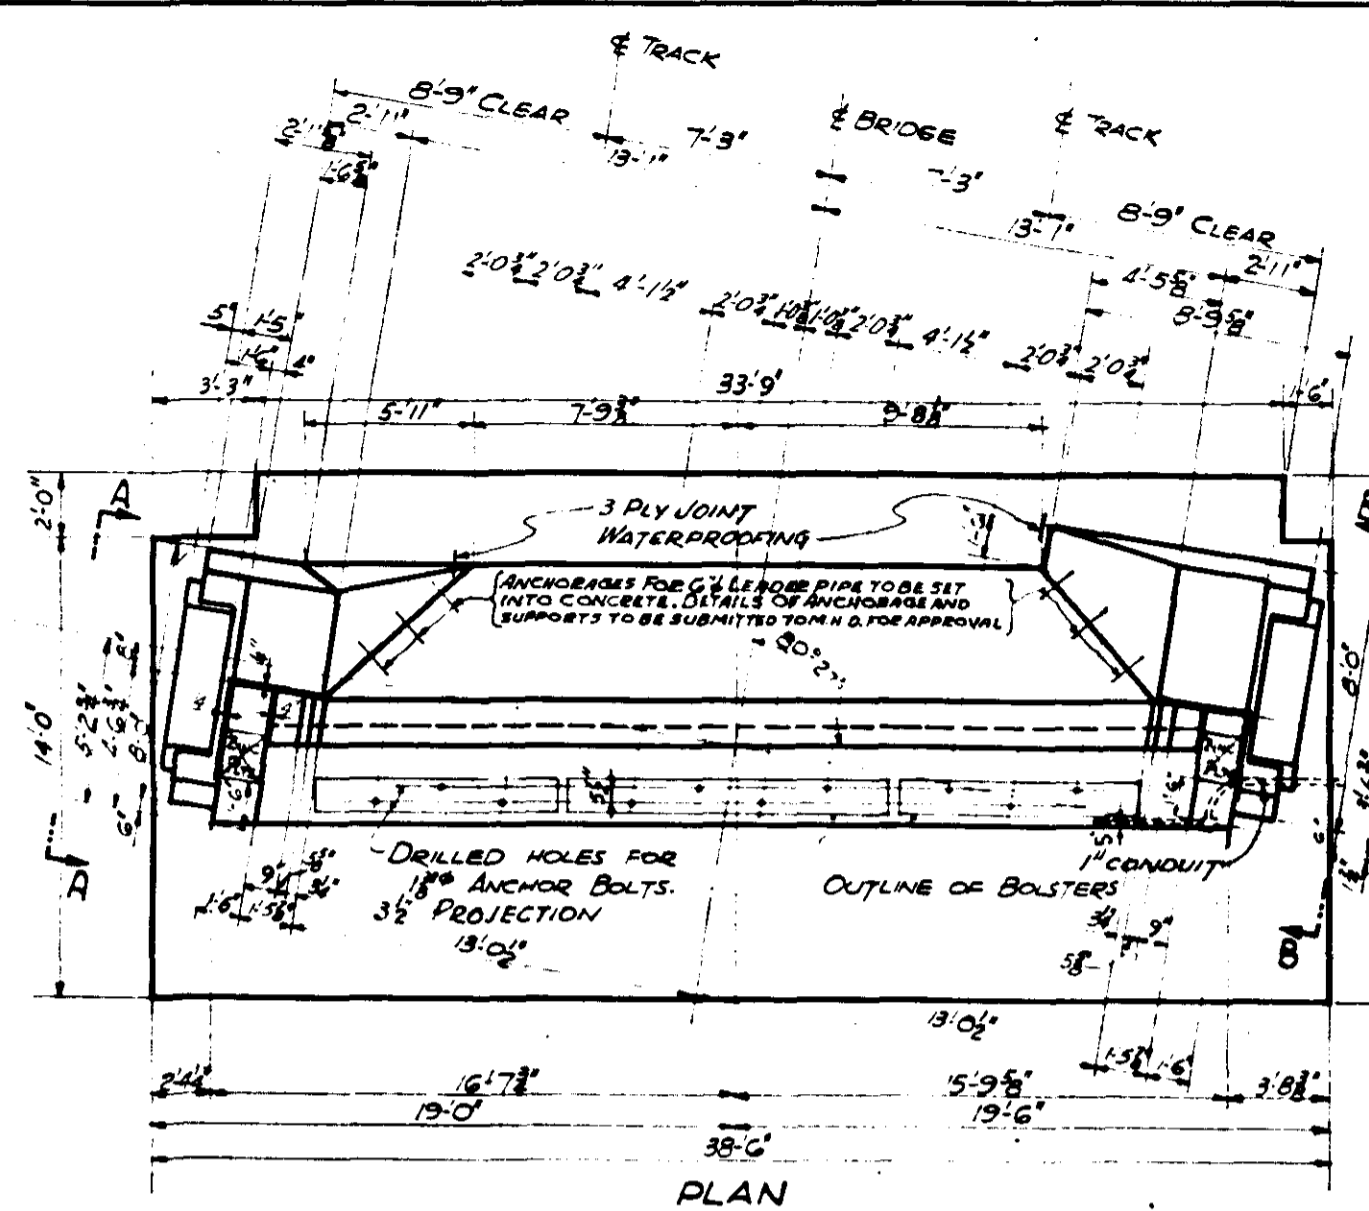 ℄ TRACK
8'-9" CLEAR
2'-11"
7'-3"
13'-1"
℄ BRIDGE
℄ TRACK
7'-3"
13'-1"
8'-9" CLEAR
2'-11"
1'-6⅝"
4'-5⅝"
8'-9⅝"
2'-0¾" 2'-0¾" 4'-1½" 2'-0¾" 1'-0⅜" 1'-0⅜" 2'-0¾" 4'-1½" 2'-0¾" 2'-0¾"
5" 1'-5"
1'-6" 4"
3'-3" 33'-9" 1'-6"
5'-11" 7'-9⅜" 9'-8⅛"
2'-0"
A
3 PLY JOINT
WATERPROOFING
ANCHORAGES FOR 6"⌀ LEADER PIPE TO BE SET
INTO CONCRETE. DETAILS OF ANCHORAGE AND
SUPPORTS TO BE SUBMITTED TO M.H.D. FOR APPROVAL
14'-0"
5'-2¾"
8'-0"
6"
5½"
1'-6"
D
DRILLED HOLES FOR
1⅜"⌀ ANCHOR BOLTS.
3½" PROJECTION
13'-0½"
OUTLINE OF BOLSTERS
1" CONDUIT
9"
1'-6" 1'-5⅞"
9"
B
13'-0½"
1'-5⅞" 1'-6"
2'-4¼" 16'-7¾" 15'-9⅝" 3'-8⅜"
19'-0" 19'-6"
38'-6"
PLAN